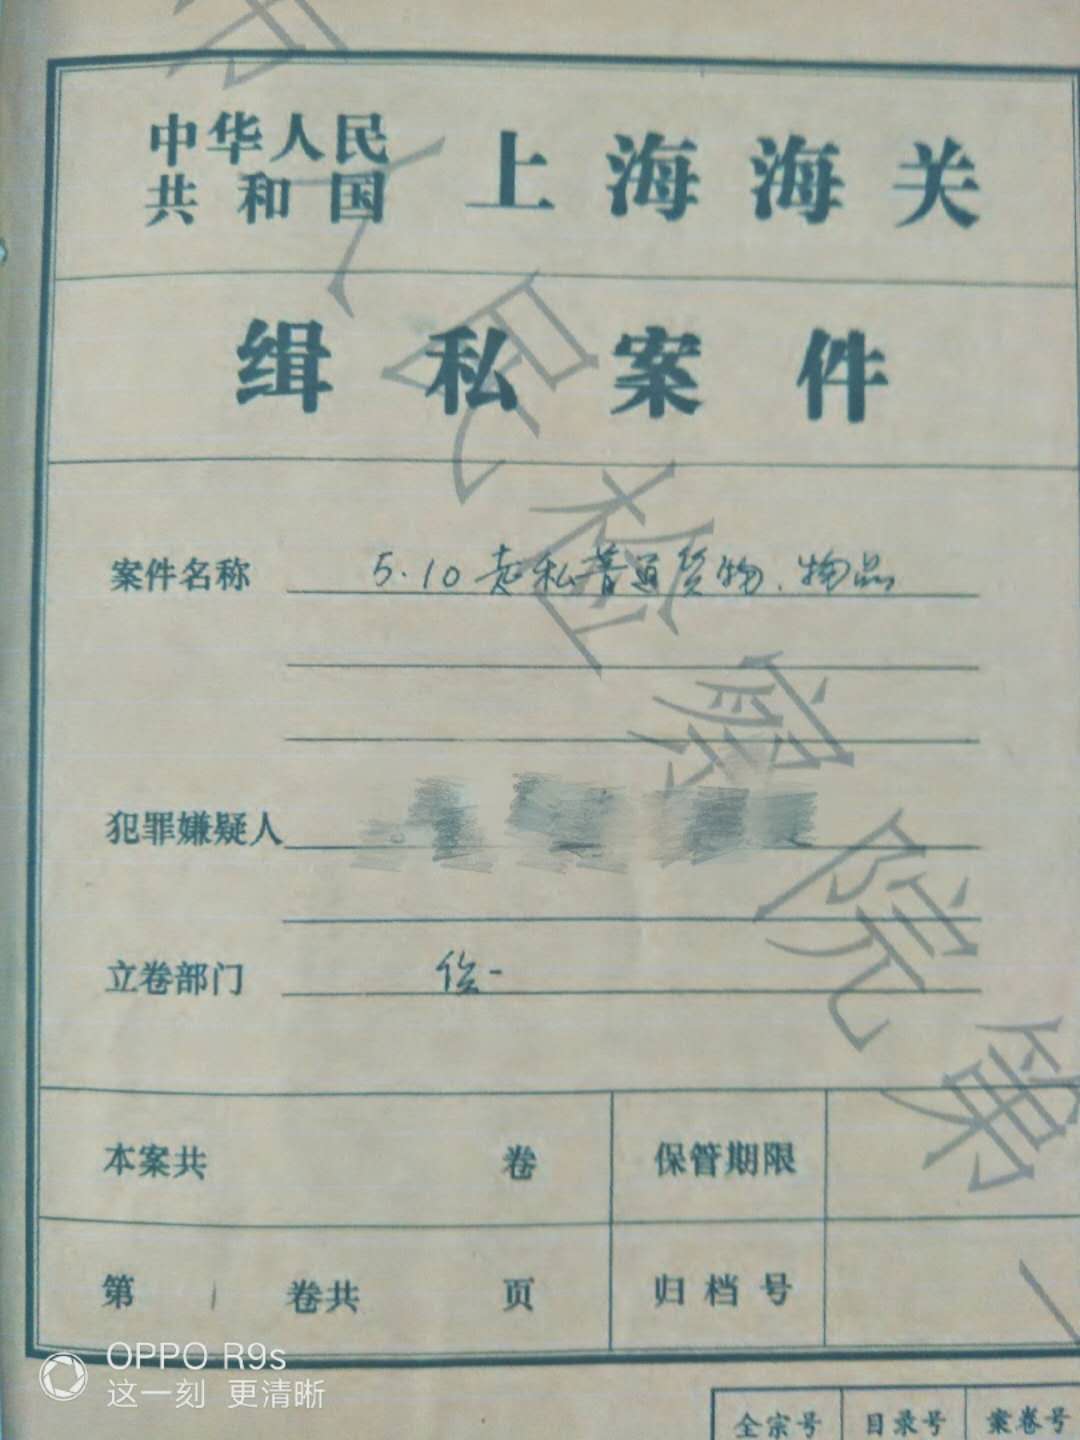 中华人民
共和国 上海海关
缉私案件
案件名称 5.10走私普通货物、物品
犯罪嫌疑人
立卷部门 侦一
本案共 卷 保管期限
第 1 卷共 页 归档号
人民检察院第一
OPPO R9s
这一刻 更清晰
全宗号 目录号 案卷号